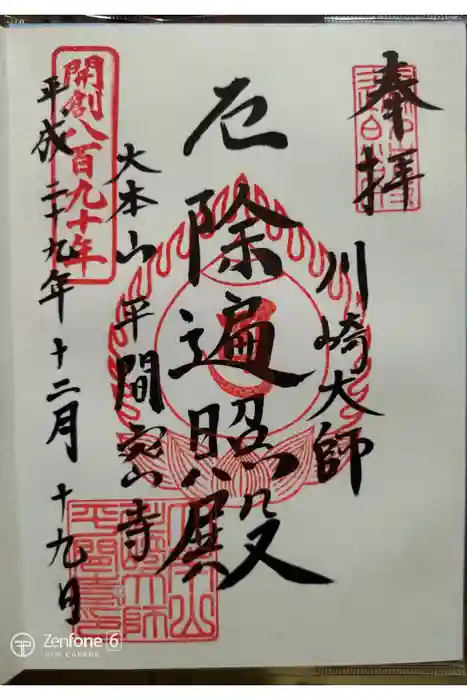 奉拝
川崎大師
厄除遍照殿
大本山 平間寺
開創八百九十年
平成二十九年十二月十九日
Zenfone 6